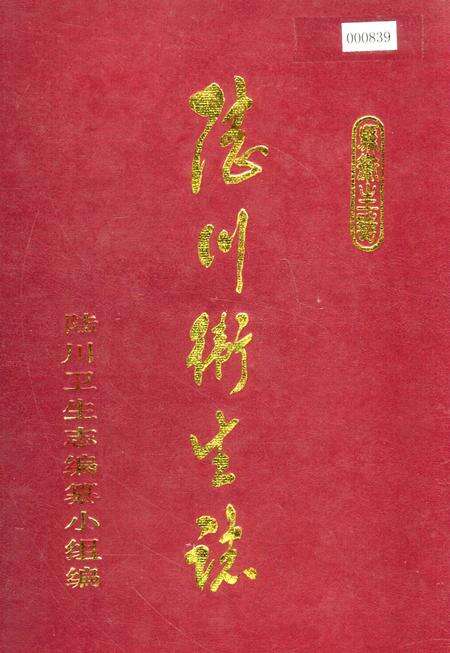 000839
陸川衛生誌
陆川卫生志编纂小组编